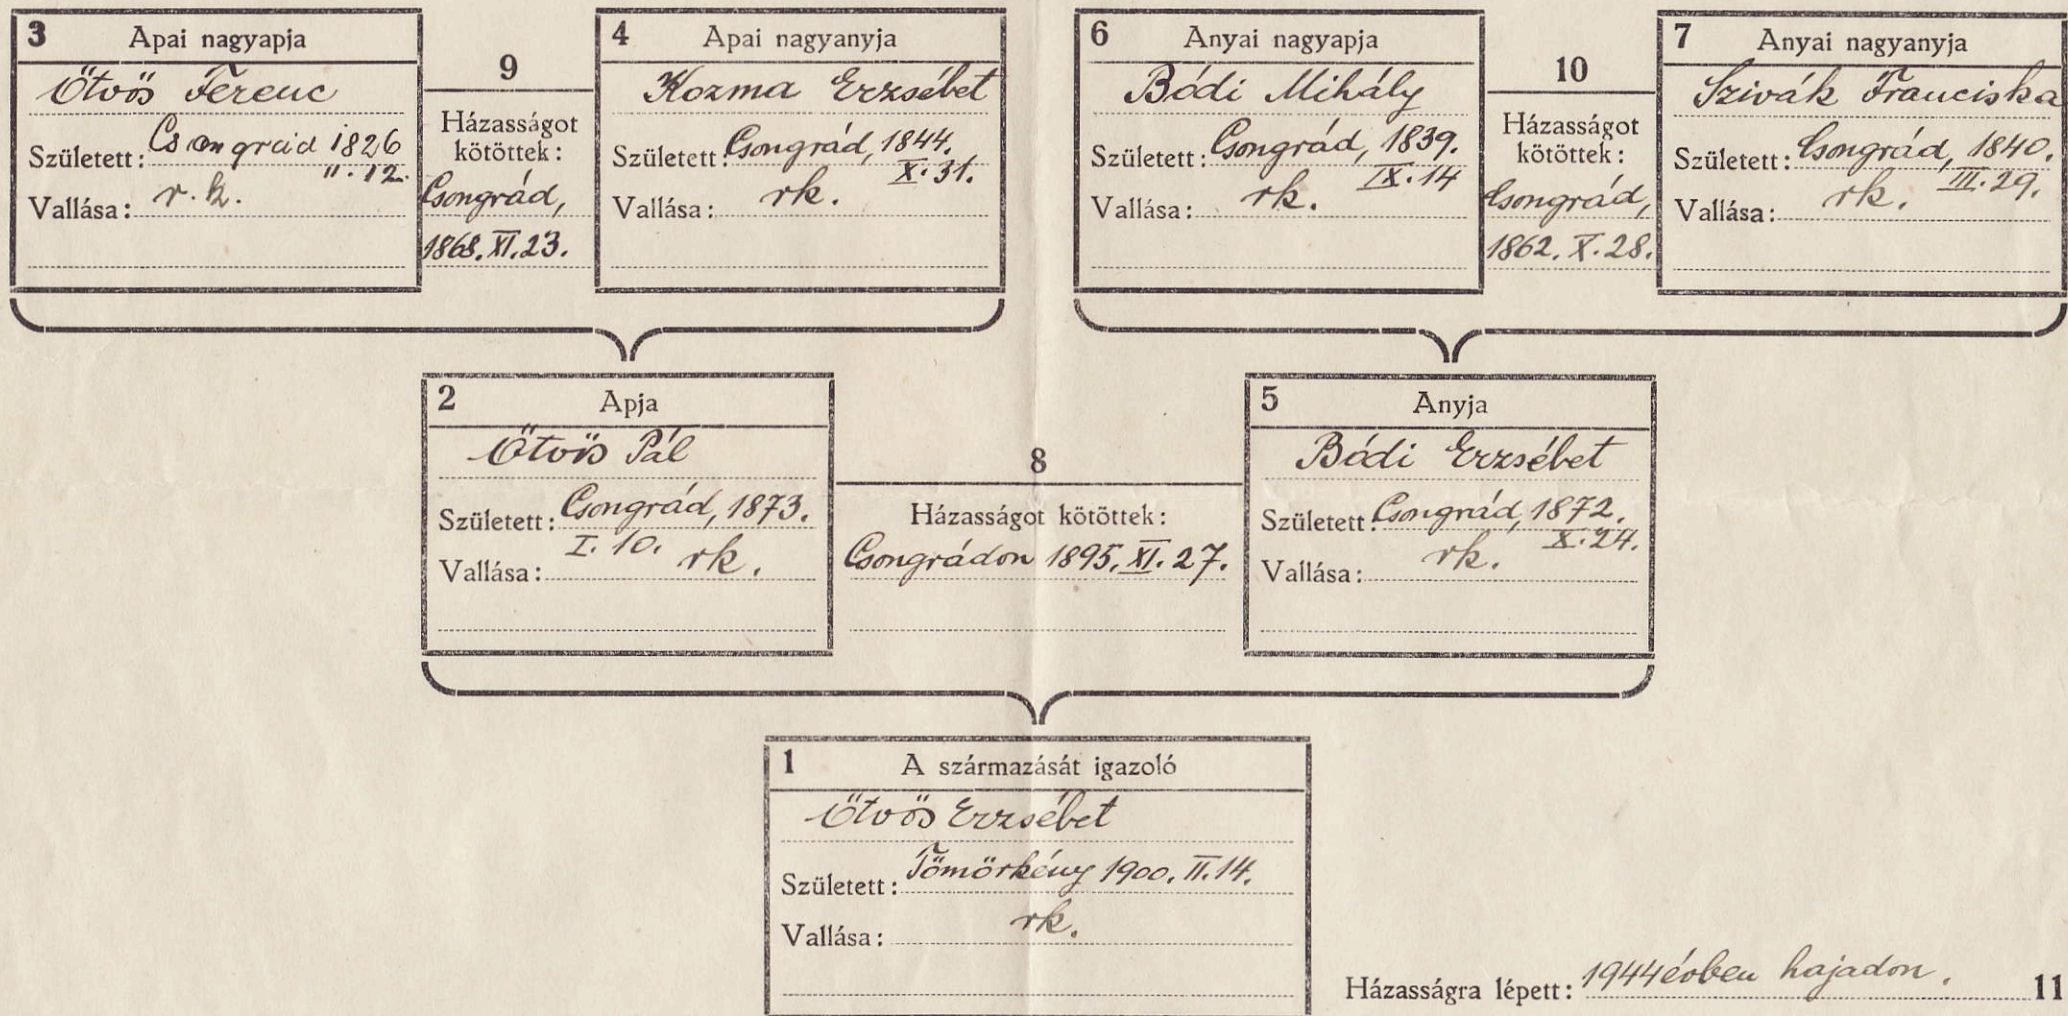 3 Apai nagyapja
Ötvös Ferenc
Született: Csongrád 1826
II. 12.
Vallása: r. k.
9
Házasságot
kötöttek:
Csongrád,
1868. XI. 23.
4 Apai nagyanyja
Kozma Erzsébet
Született: Csongrád, 1844.
X. 31.
Vallása: rk.
6 Anyai nagyapja
Bódi Mihály
Született: Csongrád, 1839.
IX. 14
Vallása: rk.
10
Házasságot
kötöttek:
Csongrád,
1862. X. 28.
7 Anyai nagyanyja
Szivák Franciska
Született: Csongrád, 1840.
III. 29.
Vallása: rk.
2 Apja
Ötvös Pál
Született: Csongrád, 1873.
I. 10.
Vallása: rk.
8
Házasságot kötöttek:
Csongrádon 1895. XI. 27.
5 Anyja
Bódi Erzsébet
Született: Csongrád, 1872.
X. 24.
Vallása: rk.
1 A származását igazoló
Ötvös Erzsébet
Született: Tömörkény 1900. II. 14.
Vallása: rk.
Házasságra lépett: 1944 évben hajadon. 11